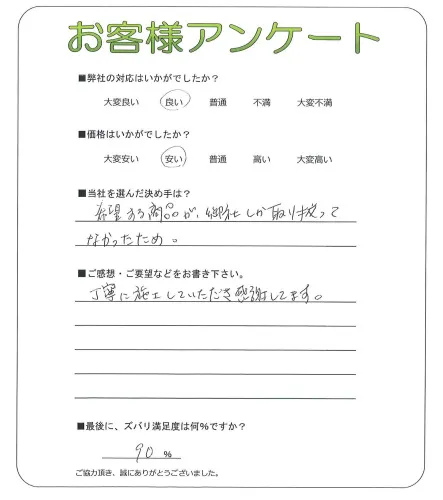 お客様アンケート
■弊社の対応はいかがでしたか?
大変良い 良い 普通 不満 大変不満
■価格はいかがでしたか?
大変安い 安い 普通 高い 大変高い
■当社を選んだ決め手は?
希望する商品が、御社しか取り扱って
なかったため。
■ご感想・ご要望などをお書き下さい。
丁寧に施工していただき感謝してます。
■最後に、ズバリ満足度は何%ですか?
90 %
ご協力頂き、誠にありがとうございました。